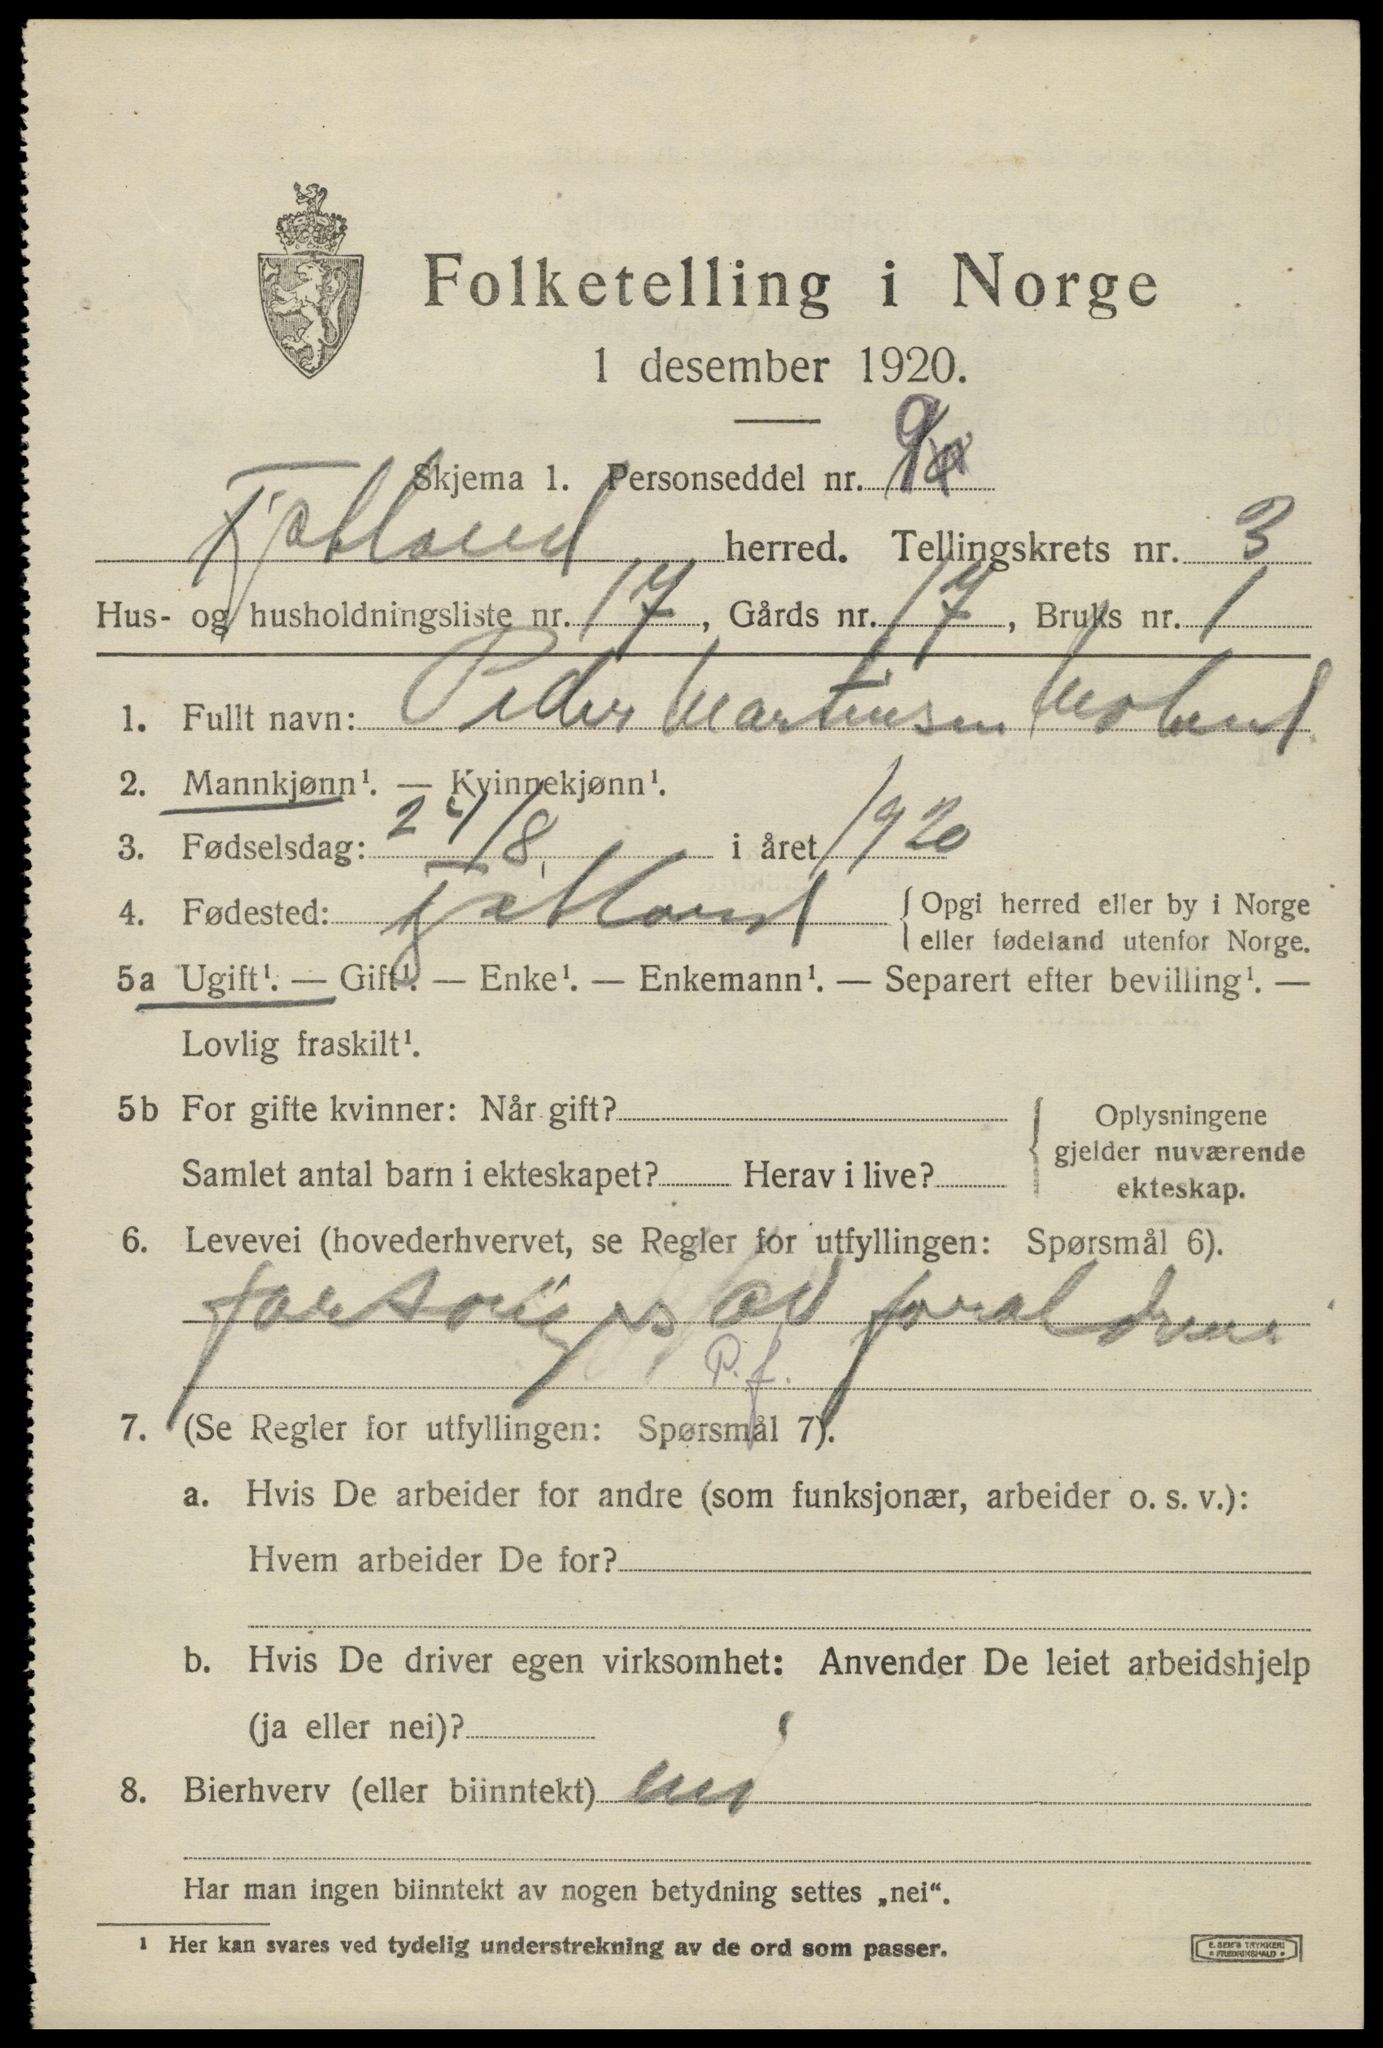 Folketelling i Norge
1 desember 1920.
Skjema 1. Personseddel nr. 9
Fjotland herred. Tellingskrets nr. 3
Hus- og husholdningsliste nr. 17, Gårds nr. 17, Bruks nr. 1
1. Fullt navn: Peder Martinsen
2. Mannkjønn¹. — Kvinnekjønn¹.
3. Fødselsdag: 24/8 i året 1920
4. Fødested: Fjotland { Opgi herred eller by i Norge
eller fødeland utenfor Norge.
5a Ugift¹. — Gift¹. — Enke¹. — Enkemann¹. — Separert efter bevilling¹. —
Lovlig fraskilt¹.
5b For gifte kvinner: Når gift?
Samlet antal barn i ekteskapet? Herav i live?
{ Oplysningene
gjelder nuværende
ekteskap.
6. Levevei (hovederhvervet, se Regler for utfyllingen: Spørsmål 6).
forsørges av foraldrene
P. f.
7. (Se Regler for utfyllingen: Spørsmål 7).
a. Hvis De arbeider for andre (som funksjonær, arbeider o. s. v.):
Hvem arbeider De for?
b. Hvis De driver egen virksomhet: Anvender De leiet arbeidshjelp
(ja eller nei)?
8. Bierhverv (eller biinntekt) nei
Har man ingen biinntekt av nogen betydning settes „nei“.
¹ Her kan svares ved tydelig understrekning av de ord som passer.
E. SEM'S TRYKKERI
• FREDRIKSHALD •